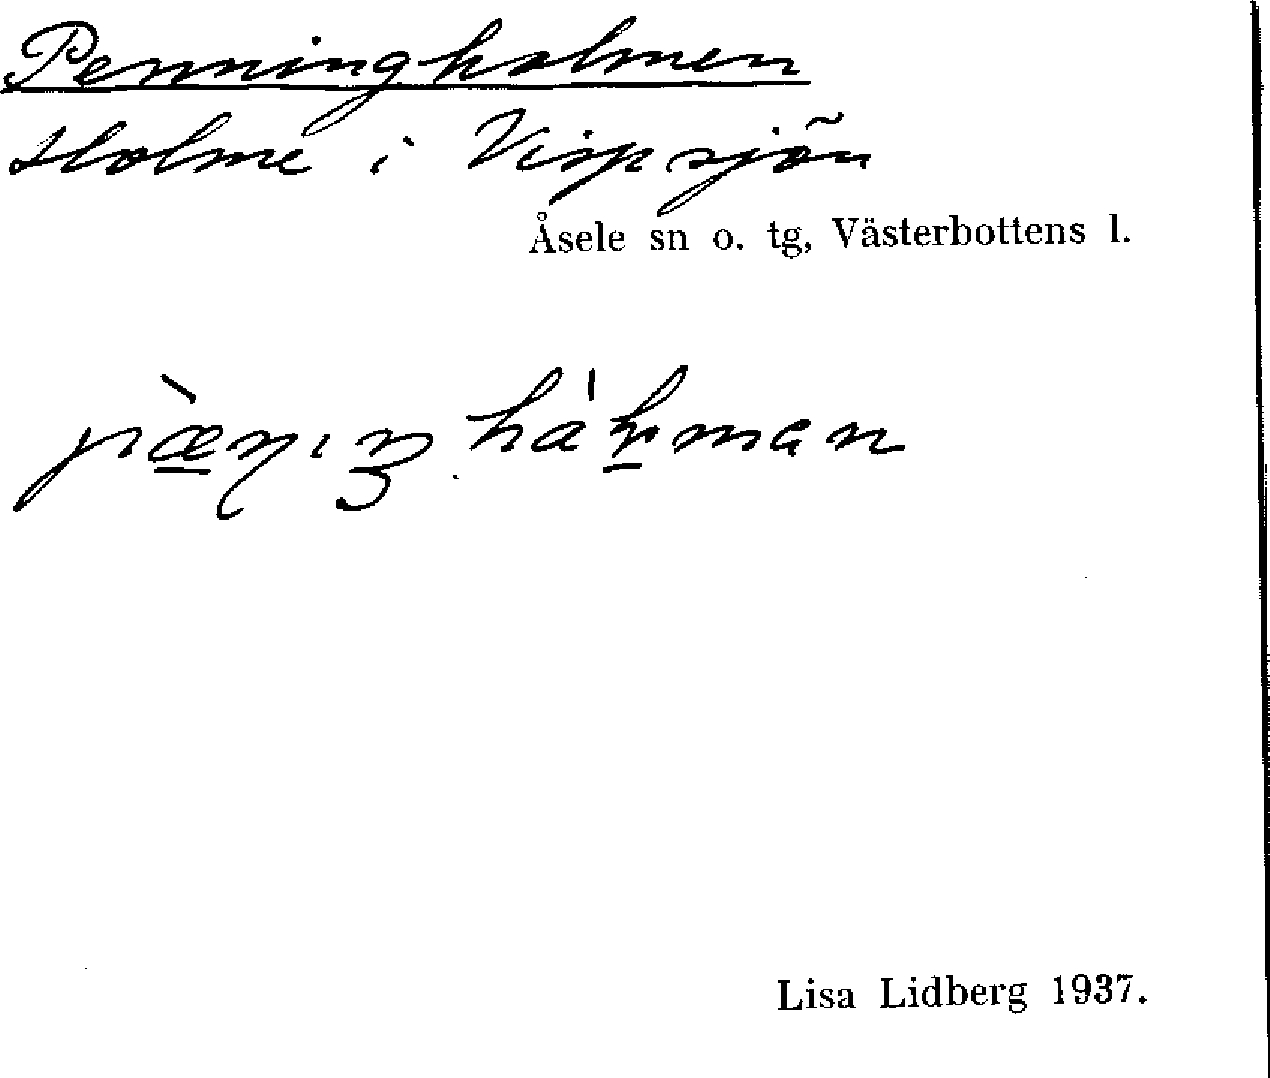 Penningholmen
Holme i Vispsjön
Åsele sn o. tg, Västerbottens l.
Lisa Lidberg 1937.